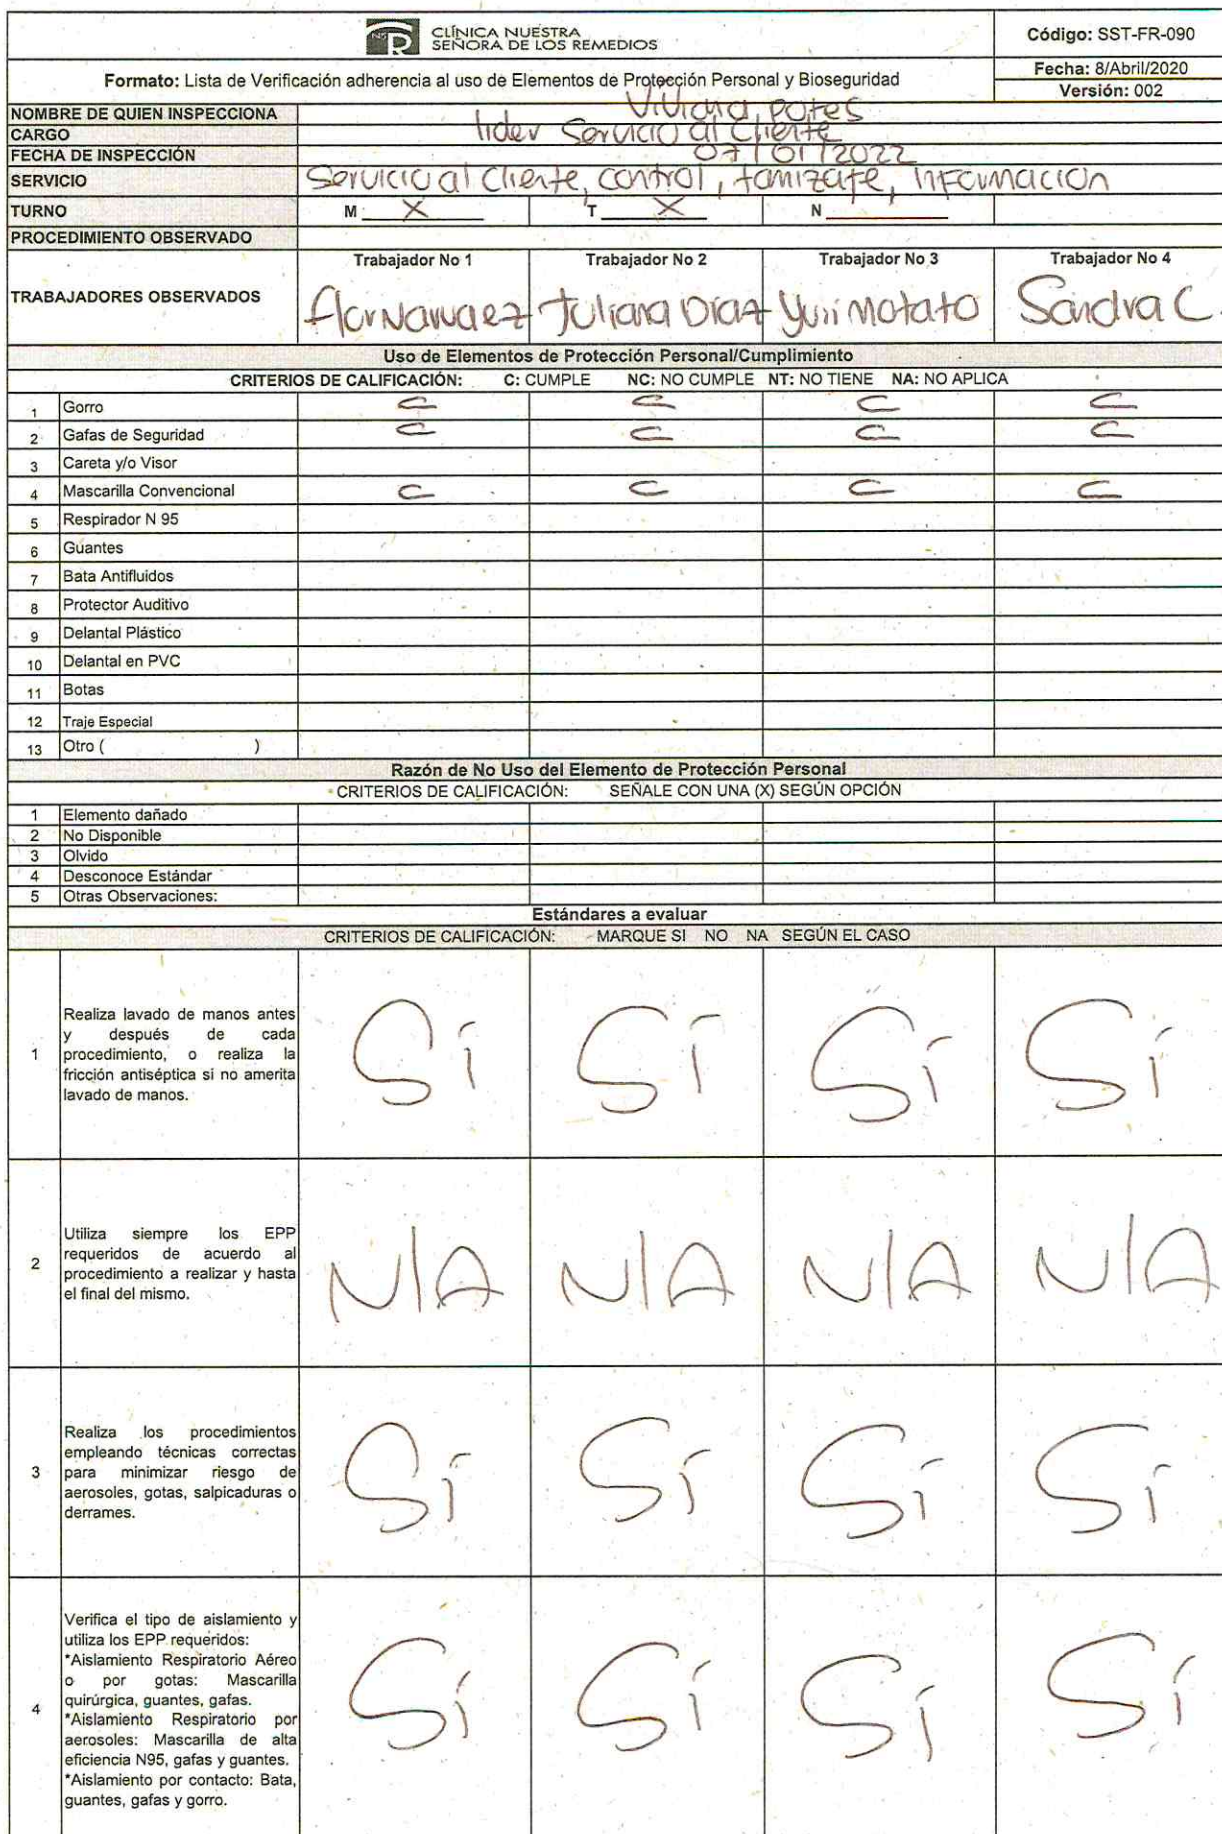 NSR CLÍNICA NUESTRA
SEÑORA DE LOS REMEDIOS
Código: SST-FR-090
Formato: Lista de Verificación adherencia al uso de Elementos de Protección Personal y Bioseguridad
Fecha: 8/Abril/2020
Versión: 002
NOMBRE DE QUIEN INSPECCIONA Viviana potes
CARGO lider Servicio al Cliente
FECHA DE INSPECCIÓN 07/01/2022
SERVICIO Servicio al Cliente, control, tamizaje, información
TURNO M X T X N
PROCEDIMIENTO OBSERVADO
Trabajador No 1 Trabajador No 2 Trabajador No 3 Trabajador No 4
TRABAJADORES OBSERVADOS flor Narvaez Juliana Diaz Yuri Motato Sandra C.
Uso de Elementos de Protección Personal/Cumplimiento
CRITERIOS DE CALIFICACIÓN: C: CUMPLE NC: NO CUMPLE NT: NO TIENE NA: NO APLICA
1 Gorro C C C C
2 Gafas de Seguridad C C C C
3 Careta y/o Visor
4 Mascarilla Convencional C C C C
5 Respirador N 95
6 Guantes
7 Bata Antifluidos
8 Protector Auditivo
9 Delantal Plástico
10 Delantal en PVC
11 Botas
12 Traje Especial
13 Otro ( )
Razón de No Uso del Elemento de Protección Personal
CRITERIOS DE CALIFICACIÓN: SEÑALE CON UNA (X) SEGÚN OPCIÓN
1 Elemento dañado
2 No Disponible
3 Olvido
4 Desconoce Estándar
5 Otras Observaciones:
Estándares a evaluar
CRITERIOS DE CALIFICACIÓN: MARQUE SI NO NA SEGÚN EL CASO
Realiza lavado de manos antes
y después de cada
1 procedimiento, o realiza la Sí Sí Sí Sí
fricción antiséptica si no amerita
lavado de manos.
Utiliza siempre los EPP
requeridos de acuerdo al
2 procedimiento a realizar y hasta N/A N/A N/A N/A
el final del mismo.
Realiza los procedimientos
empleando técnicas correctas
3 para minimizar riesgo de Sí Sí Sí Sí
aerosoles, gotas, salpicaduras o
derrames.
Verifica el tipo de aislamiento y
utiliza los EPP requeridos:
*Aislamiento Respiratorio Aéreo
o por gotas: Mascarilla
quirúrgica, guantes, gafas.
4 *Aislamiento Respiratorio por Sí Sí Sí Sí
aerosoles: Mascarilla de alta
eficiencia N95, gafas y guantes.
*Aislamiento por contacto: Bata,
guantes, gafas y gorro.